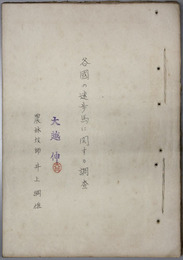 各國ノ速歩馬ニ関スル調査
大越伸
農林技師 井上綱雄